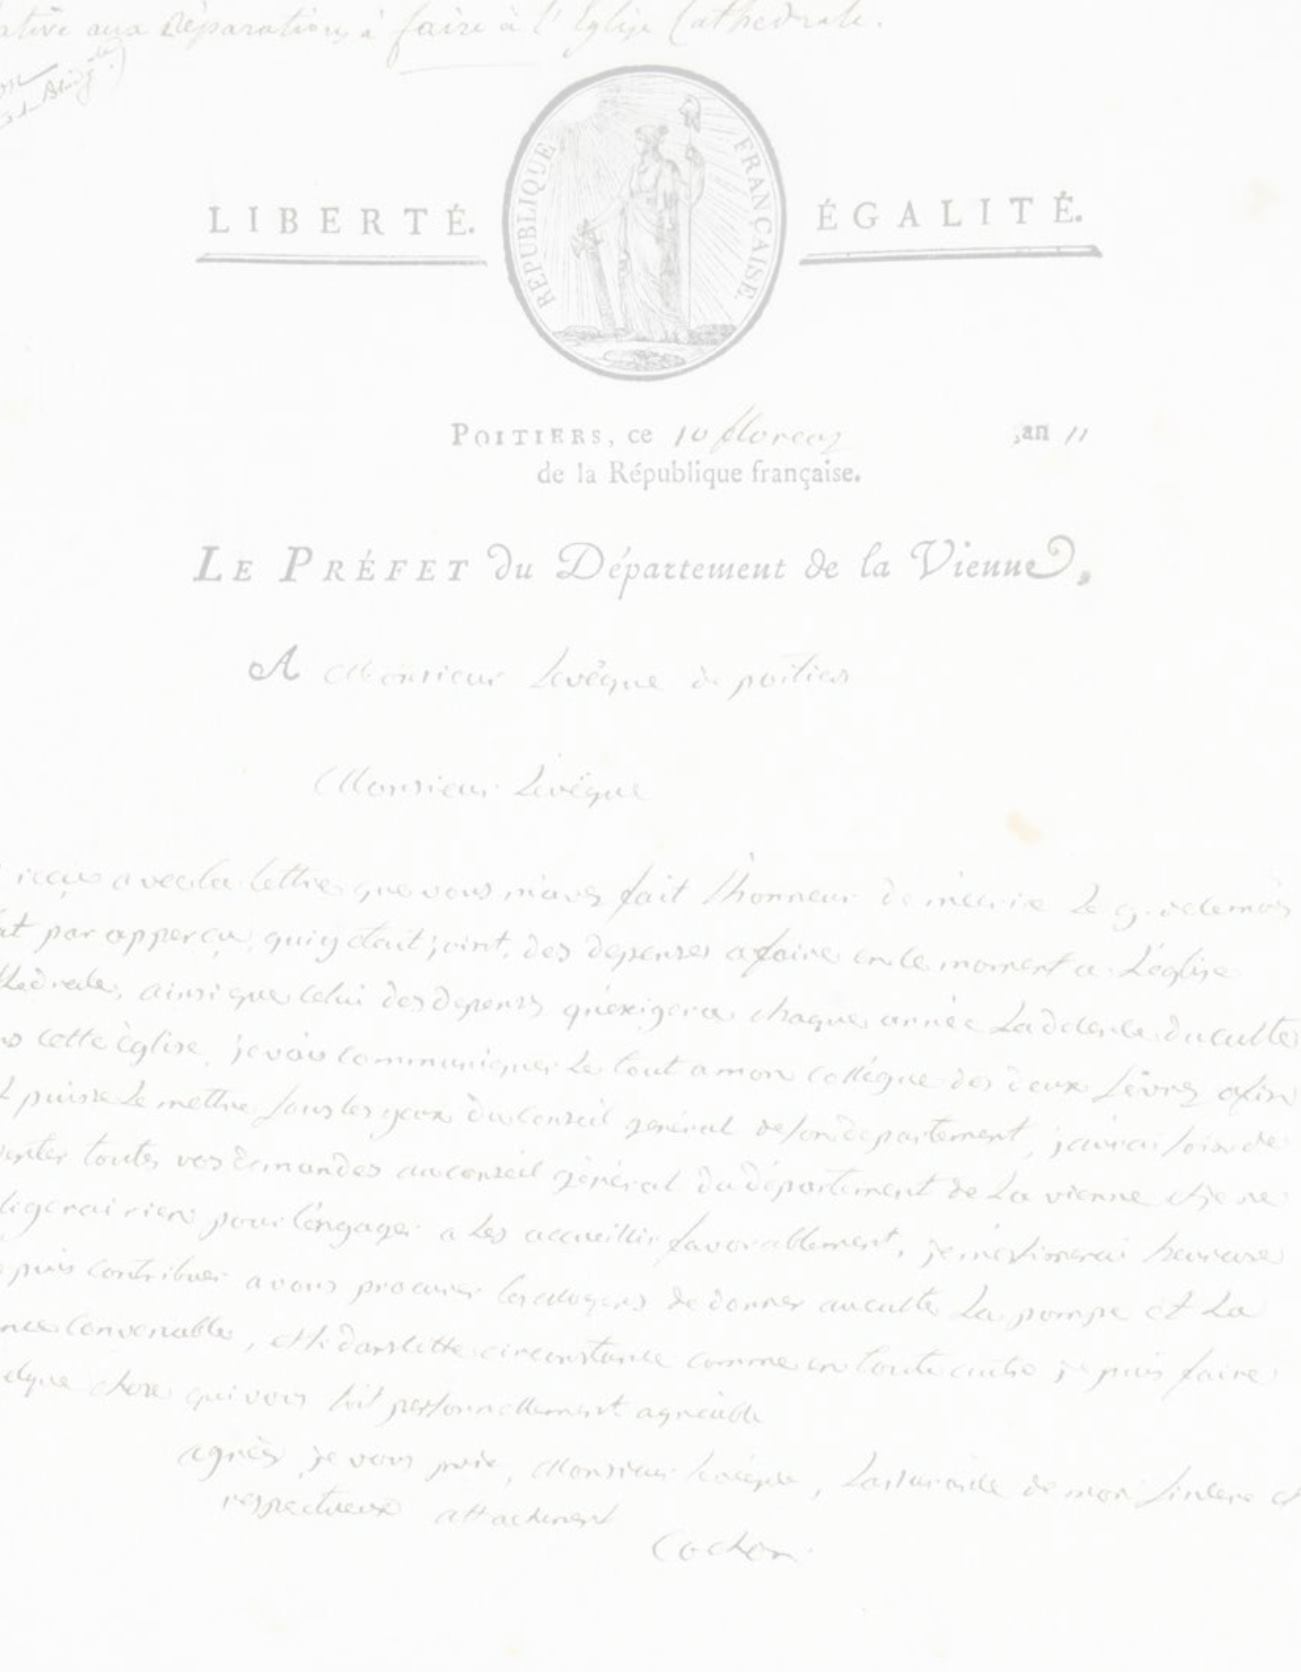 ative aux Réparations à faire à l'Eglise Cathedrale.
RÉPUBLIQUE FRANÇAISE.
LIBERTÉ. ÉGALITÉ.
POITIERS, ce 10 floreal ,an 11
de la République française.
LE PRÉFET du Département de la Vienne,
A Monsieur Levêque de poitiers
Monsieur Levêque
reçu avec la lettre que vous m'avez fait l'honneur de m'ecrire le 9. de ce mois
at par apperçu qui y etait joint, des depenses a faire en ce moment a L'église
thedrale, ainsi que celui des depenses qu'exigera chaque année La decence du culte
ns cette église, je vais communiquer le tout a mon collégue des deux Sèvres afin
l puisse Le mettre sous les yeux du Conseil général de son departement, j'aurai soin de
senter toutes vos demandes au conseil général du département de La vienne et je ne
ligerai rien pour l'engager a Les accueillir favorablement, je m'estimerai heureux
puis contribuer a vous procurer les moyens de donner au culte La pompe et La
nce convenable, et si dans cette circonstance comme en toute autre je puis faire
elque chose qui vous soit personnellement agréable
agréez, je vous prie, Monsieur Levêque, L'assurance de mon sincere et
respectueux attachement
Cochon